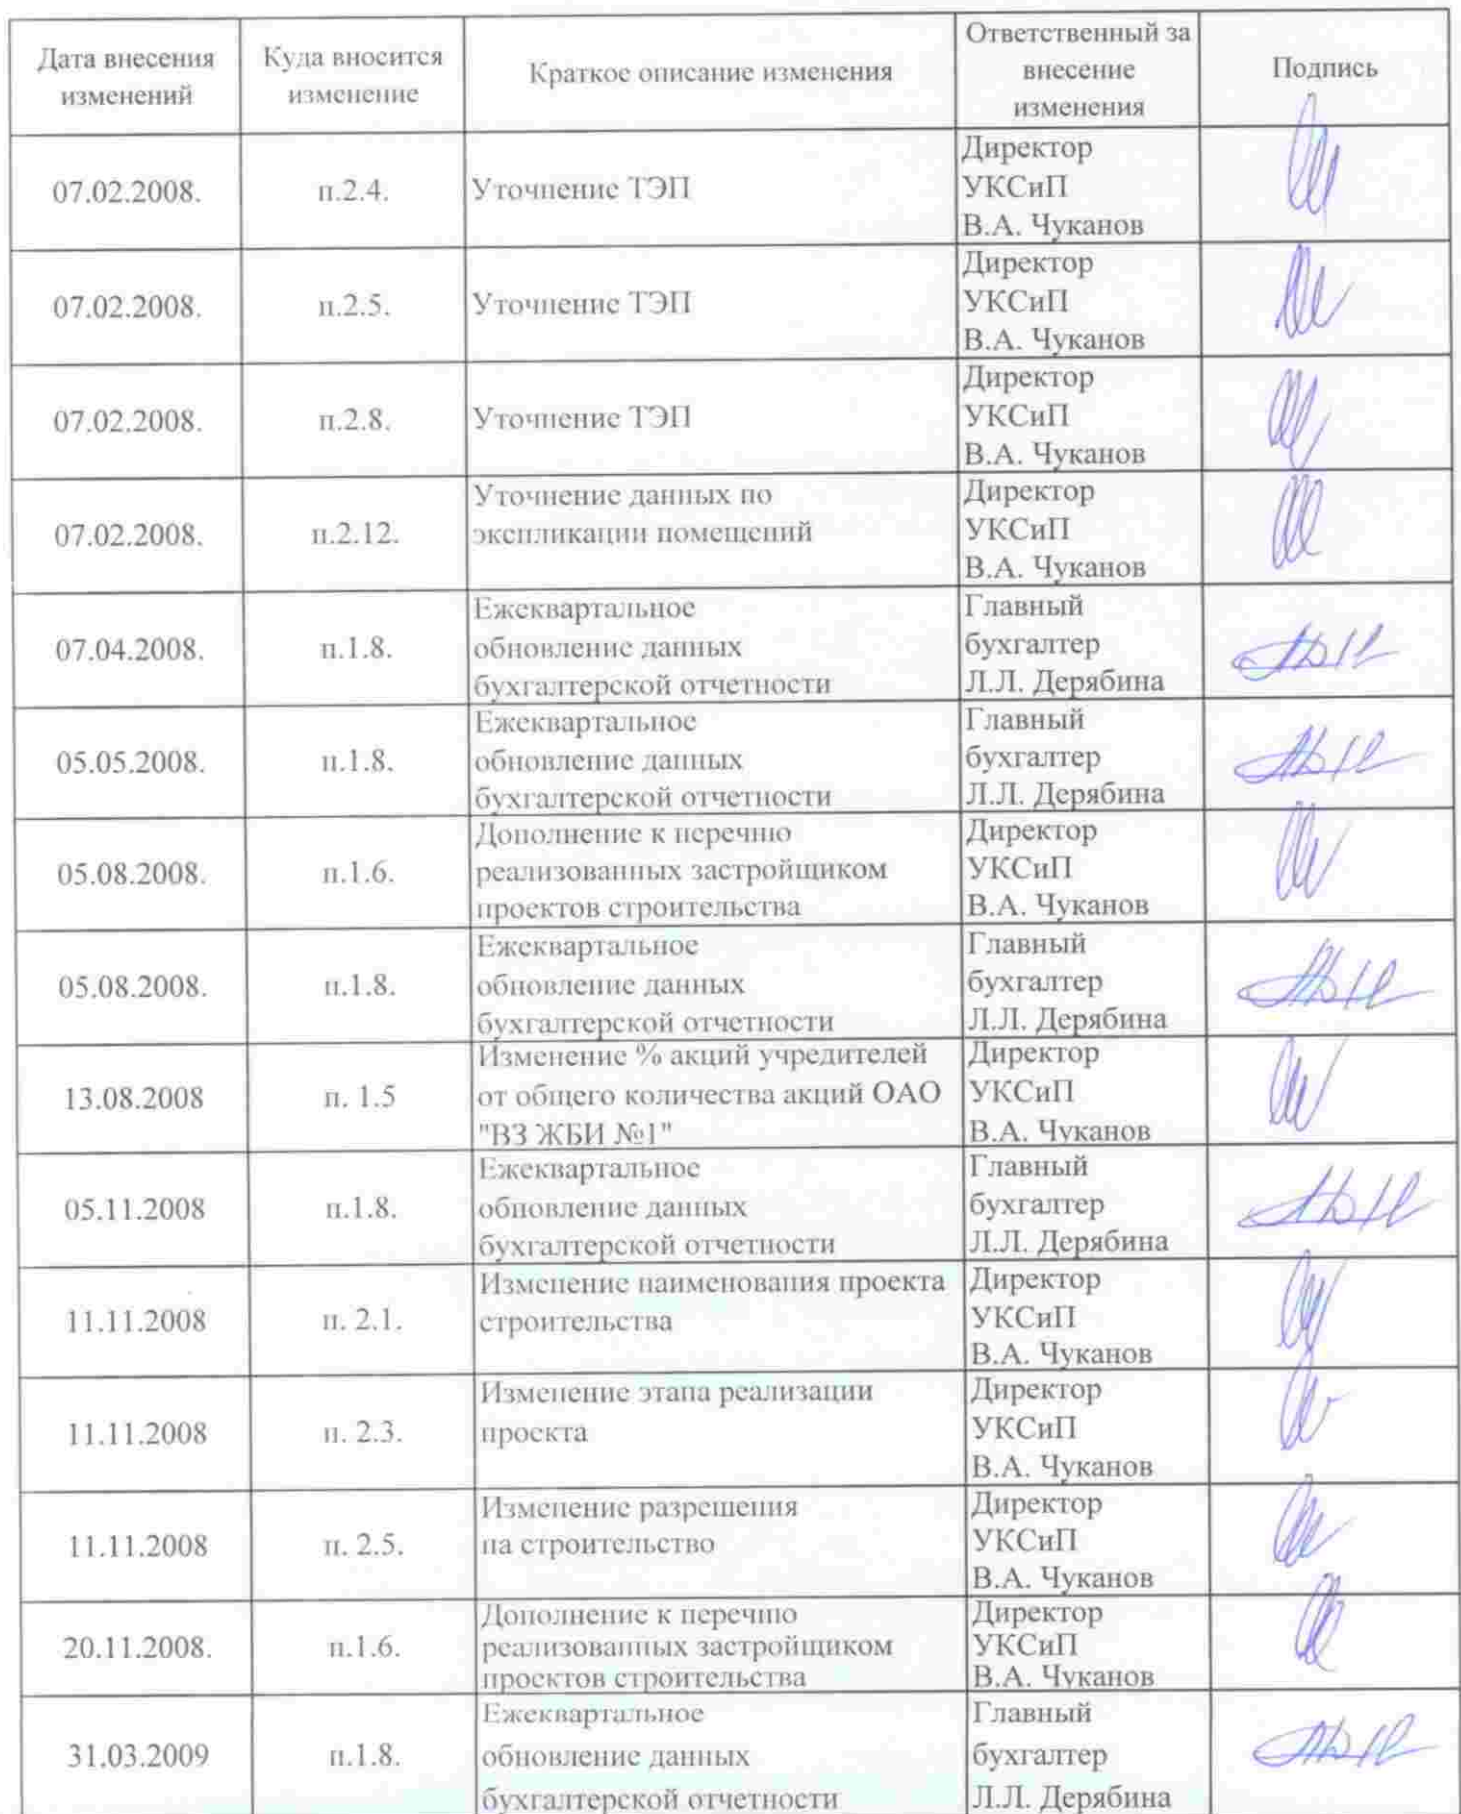 Дата внесения
изменений
Куда вносится
изменение
Краткое описание изменения
Ответственный за
внесение
изменения
Подпись
07.02.2008.
п.2.4.
Уточнение ТЭП
Директор
УКСиП
В.А. Чуканов
07.02.2008.
п.2.5.
Уточнение ТЭП
Директор
УКСиП
В.А. Чуканов
07.02.2008.
п.2.8.
Уточнение ТЭП
Директор
УКСиП
В.А. Чуканов
07.02.2008.
п.2.12.
Уточнение данных по
экспликации помещений
Директор
УКСиП
В.А. Чуканов
07.04.2008.
п.1.8.
Ежеквартальное
обновление данных
бухгалтерской отчетности
Главный
бухгалтер
Л.Л. Дерябина
05.05.2008.
п.1.8.
Ежеквартальное
обновление данных
бухгалтерской отчетности
Главный
бухгалтер
Л.Л. Дерябина
05.08.2008.
п.1.6.
Дополнение к перечню
реализованных застройщиком
проектов строительства
Директор
УКСиП
В.А. Чуканов
05.08.2008.
п.1.8.
Ежеквартальное
обновление данных
бухгалтерской отчетности
Главный
бухгалтер
Л.Л. Дерябина
13.08.2008
п. 1.5
Изменение % акций учредителей
от общего количества акций ОАО
"ВЗ ЖБИ №1"
Директор
УКСиП
В.А. Чуканов
05.11.2008
п.1.8.
Ежеквартальное
обновление данных
бухгалтерской отчетности
Главный
бухгалтер
Л.Л. Дерябина
11.11.2008
п. 2.1.
Изменение наименования проекта
строительства
Директор
УКСиП
В.А. Чуканов
11.11.2008
п. 2.3.
Изменение этапа реализации
проекта
Директор
УКСиП
В.А. Чуканов
11.11.2008
п. 2.5.
Изменение разрешения
на строительство
Директор
УКСиП
В.А. Чуканов
20.11.2008.
п.1.6.
Дополнение к перечню
реализованных застройщиком
проектов строительства
Директор
УКСиП
В.А. Чуканов
31.03.2009
п.1.8.
Ежеквартальное
обновление данных
бухгалтерской отчетности
Главный
бухгалтер
Л.Л. Дерябина